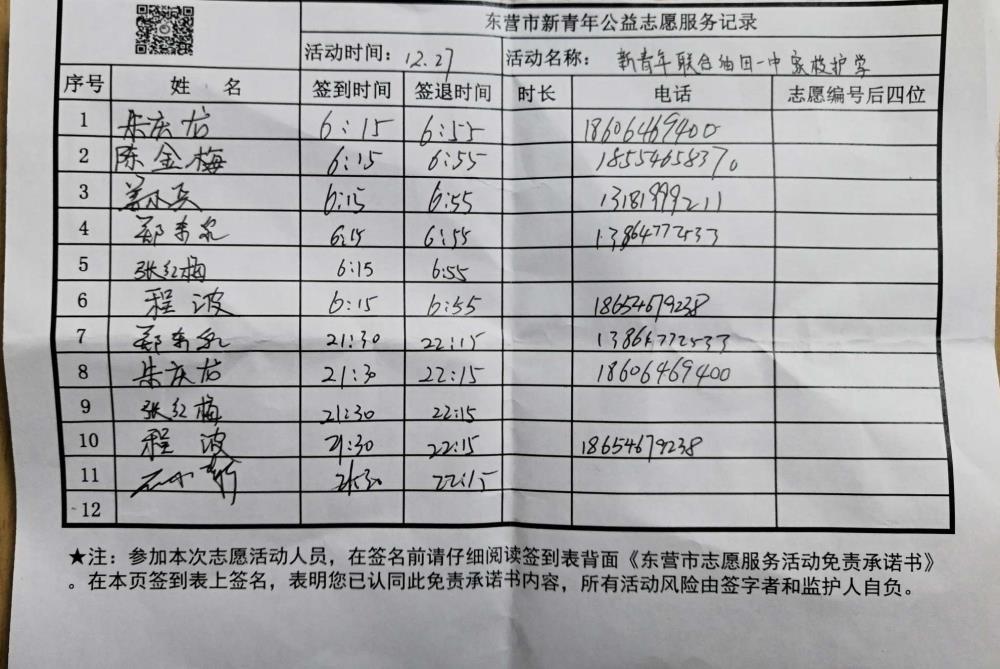 东营市新青年公益志愿服务记录
活动时间: 12.27 活动名称: 新青年联合油田一中家校护学
序号 姓 名 签到时间 签退时间 时长 电话 志愿编号后四位
1 朱庆君 6:15 6:55 18606469400
2 陈金梅 6:15 6:55 18554658370
3 6:15 6:55 13181999211
4 郑秀泉 6:15 6:55 13864772533
5 张红梅 6:15 6:55
6 程波 6:15 6:55 18654679238
7 郑秀泉 21:30 22:15 13864772533
8 朱庆君 21:30 22:15 18606469400
9 张红梅 21:30 22:15
10 程波 21:30 22:15 18654679238
11 21:30 22:15
12
★注：参加本次志愿活动人员，在签名前请仔细阅读签到表背面《东营市志愿服务活动免责承诺书》
。在本页签到表上签名，表明您已认同此免责承诺书内容，所有活动风险由签字者和监护人自负。